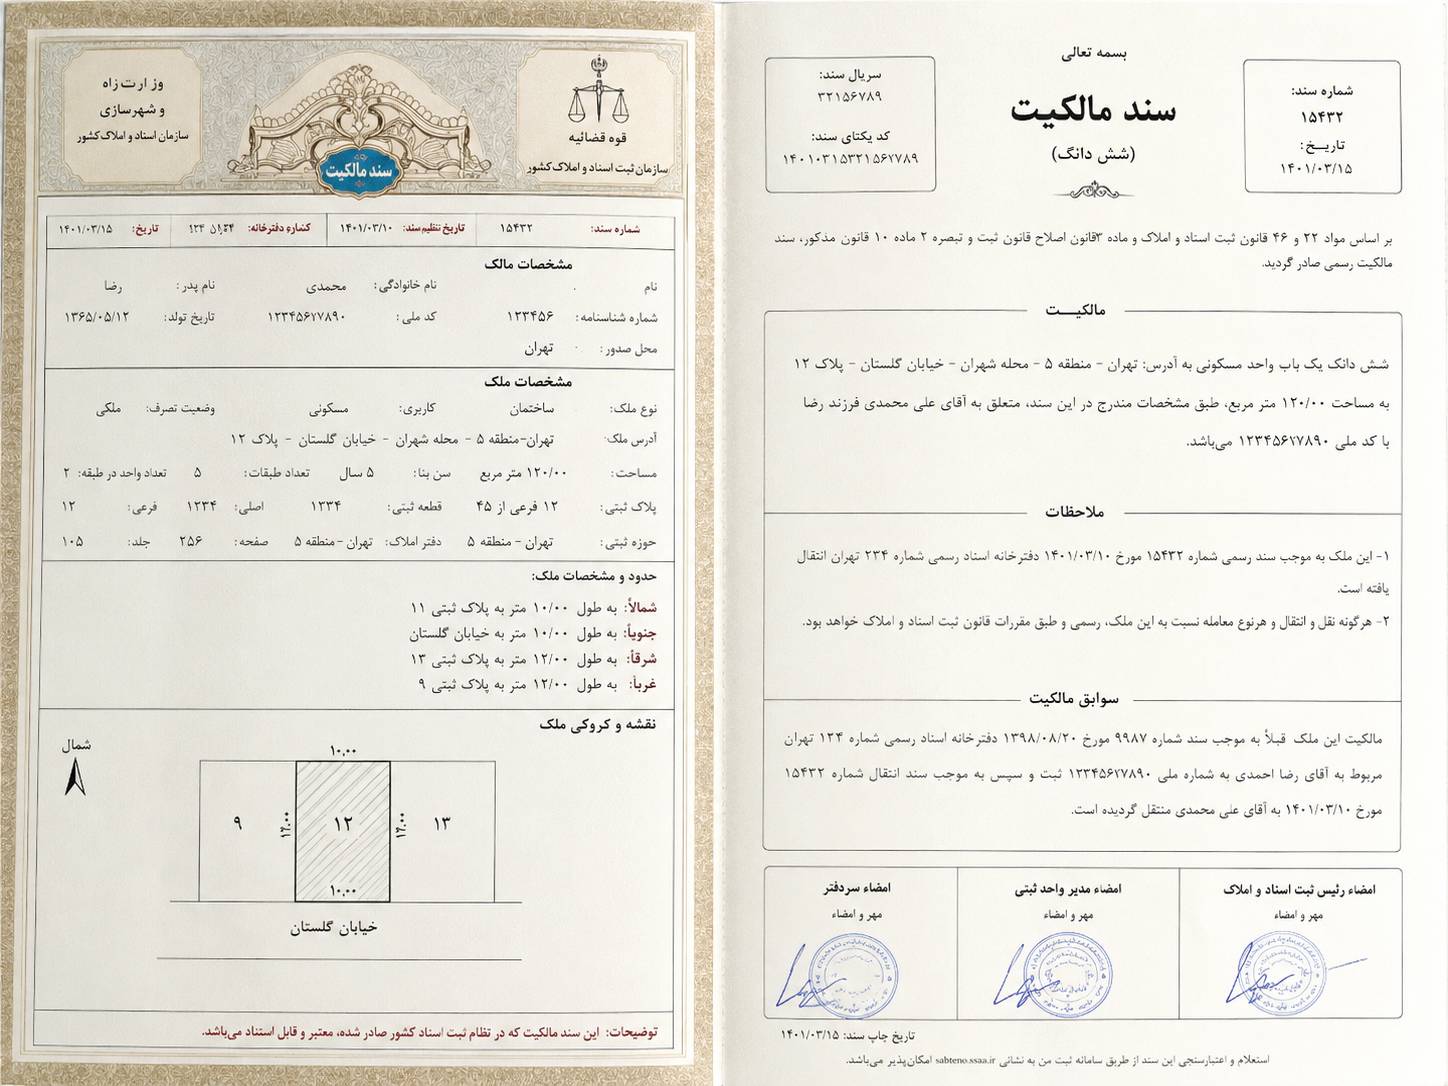 وزارت راه
و شهرسازی
سازمان اسناد و املاک کشور
سند مالکیت
قوه قضائیه
سازمان ثبت اسناد و املاک کشور
شماره سند: ۱۵۴۳۲ تاریخ تنظیم سند: ۱۴۰۱/۰۳/۱۰ دفترخانه: تاریخ: ۱۴۰۱/۰۳/۱۵
مشخصات مالک
نام نام خانوادگی: محمدی نام پدر: رضا
شماره شناسنامه: ۱۲۳۴۵۶ کد ملی: تاریخ تولد: ۱۳۶۵/۰۵/۱۲
محل صدور: تهران
مشخصات ملک
نوع ملک: ساختمان کاربری: مسکونی وضعیت تصرف: ملکی
آدرس ملک: تهران-منطقه ۵ - محله شهران - خیابان گلستان - پلاک ۱۲
مساحت: ۱۲۰/۰۰ متر مربع سن بنا: ۵ سال تعداد طبقات: ۵ تعداد واحد در طبقه: ۲
پلاک ثبتی: ۱۲ فرعی از ۴۵ قطعه ثبتی: ۱۲۳۴ اصلی: ۱۲۳۴ فرعی: ۱۲
حوزه ثبتی: تهران - منطقه ۵ دفتر املاک: تهران - منطقه ۵ صفحه: ۲۵۶ جلد: ۱۰۵
حدود و مشخصات ملک:
شمالاً: به طول ۱۰/۰۰ متر به پلاک ثبتی ۱۱
جنوباً: به طول ۱۰/۰۰ متر به خیابان گلستان
شرقاً: به طول ۱۲/۰۰ متر به پلاک ثبتی ۱۳
غرباً: به طول ۱۲/۰۰ متر به پلاک ثبتی ۹
نقشه و کروکی ملک
شمال
۱۰.۰۰
۹ ۱۲.۰۰ ۱۲ ۱۲.۰۰ ۱۳
۱۰.۰۰
خیابان گلستان
توضیحات: این سند مالکیت که در نظام ثبت اسناد کشور صادر شده، معتبر و قابل استناد می‌باشد.
بسمه تعالی
سند مالکیت
(شش دانگ)
شماره سند:
۱۵۴۳۲
تاریـخ:
۱۴۰۱/۰۳/۱۵
سریال سند:
۳۲۱۵۶۷۸۹
کد یکتای سند:
۱۴۰۱۰۳۱۵۳۲۱۵۶۷۸۹
بر اساس مواد ۲۲ و ۴۶ قانون ثبت اسناد و املاک و ماده ۳قانون اصلاح قانون ثبت و تبصره ۲ ماده ۱۰ قانون مذکور، سند
مالکیت رسمی صادر گردید.
مالکیـــت
شش دانک یک باب واحد مسکونی به آدرس: تهران - منطقه ۵ - محله شهران - خیابان گلستان - پلاک ۱۲
به مساحت ۱۲۰/۰۰ متر مربع، طبق مشخصات مندرج در این سند، متعلق به آقای علی محمدی فرزند رضا
با کد ملی می‌باشد.
ملاحظات
۱- این ملک به موجب سند رسمی شماره ۱۵۴۳۲ مورخ ۱۴۰۱/۰۳/۱۰ دفترخانه اسناد رسمی شماره ۲۳۴ تهران انتقال
یافته است.
۲- هرگونه نقل و انتقال و هرنوع معامله نسبت به این ملک، رسمی و طبق مقررات قانون ثبت اسناد و املاک خواهد بود.
سوابق مالکیت
مالکیت این ملک قبلاً به موجب سند شماره ۹۹۸۷ مورخ ۱۳۹۸/۰۸/۲۰ دفترخانه اسناد رسمی شماره ۱۲۴ تهران
مربوط به آقای رضا احمدی به شماره ملی ثبت و سپس به موجب سند انتقال شماره ۱۵۴۳۲
مورخ ۱۴۰۱/۰۳/۱۰ به آقای علی محمدی منتقل گردیده است.
امضاء رئیس ثبت اسناد و املاک
مهر و امضاء
امضاء مدیر واحد ثبتی
مهر و امضاء
امضاء سردفتر
مهر و امضاء
تاریخ چاپ سند: ۱۴۰۱/۰۳/۱۵
استعلام و اعتبارسنجی این سند از طریق سامانه ثبت من به نشانی sabteno.ssaa.ir امکان‌پذیر می‌باشد.